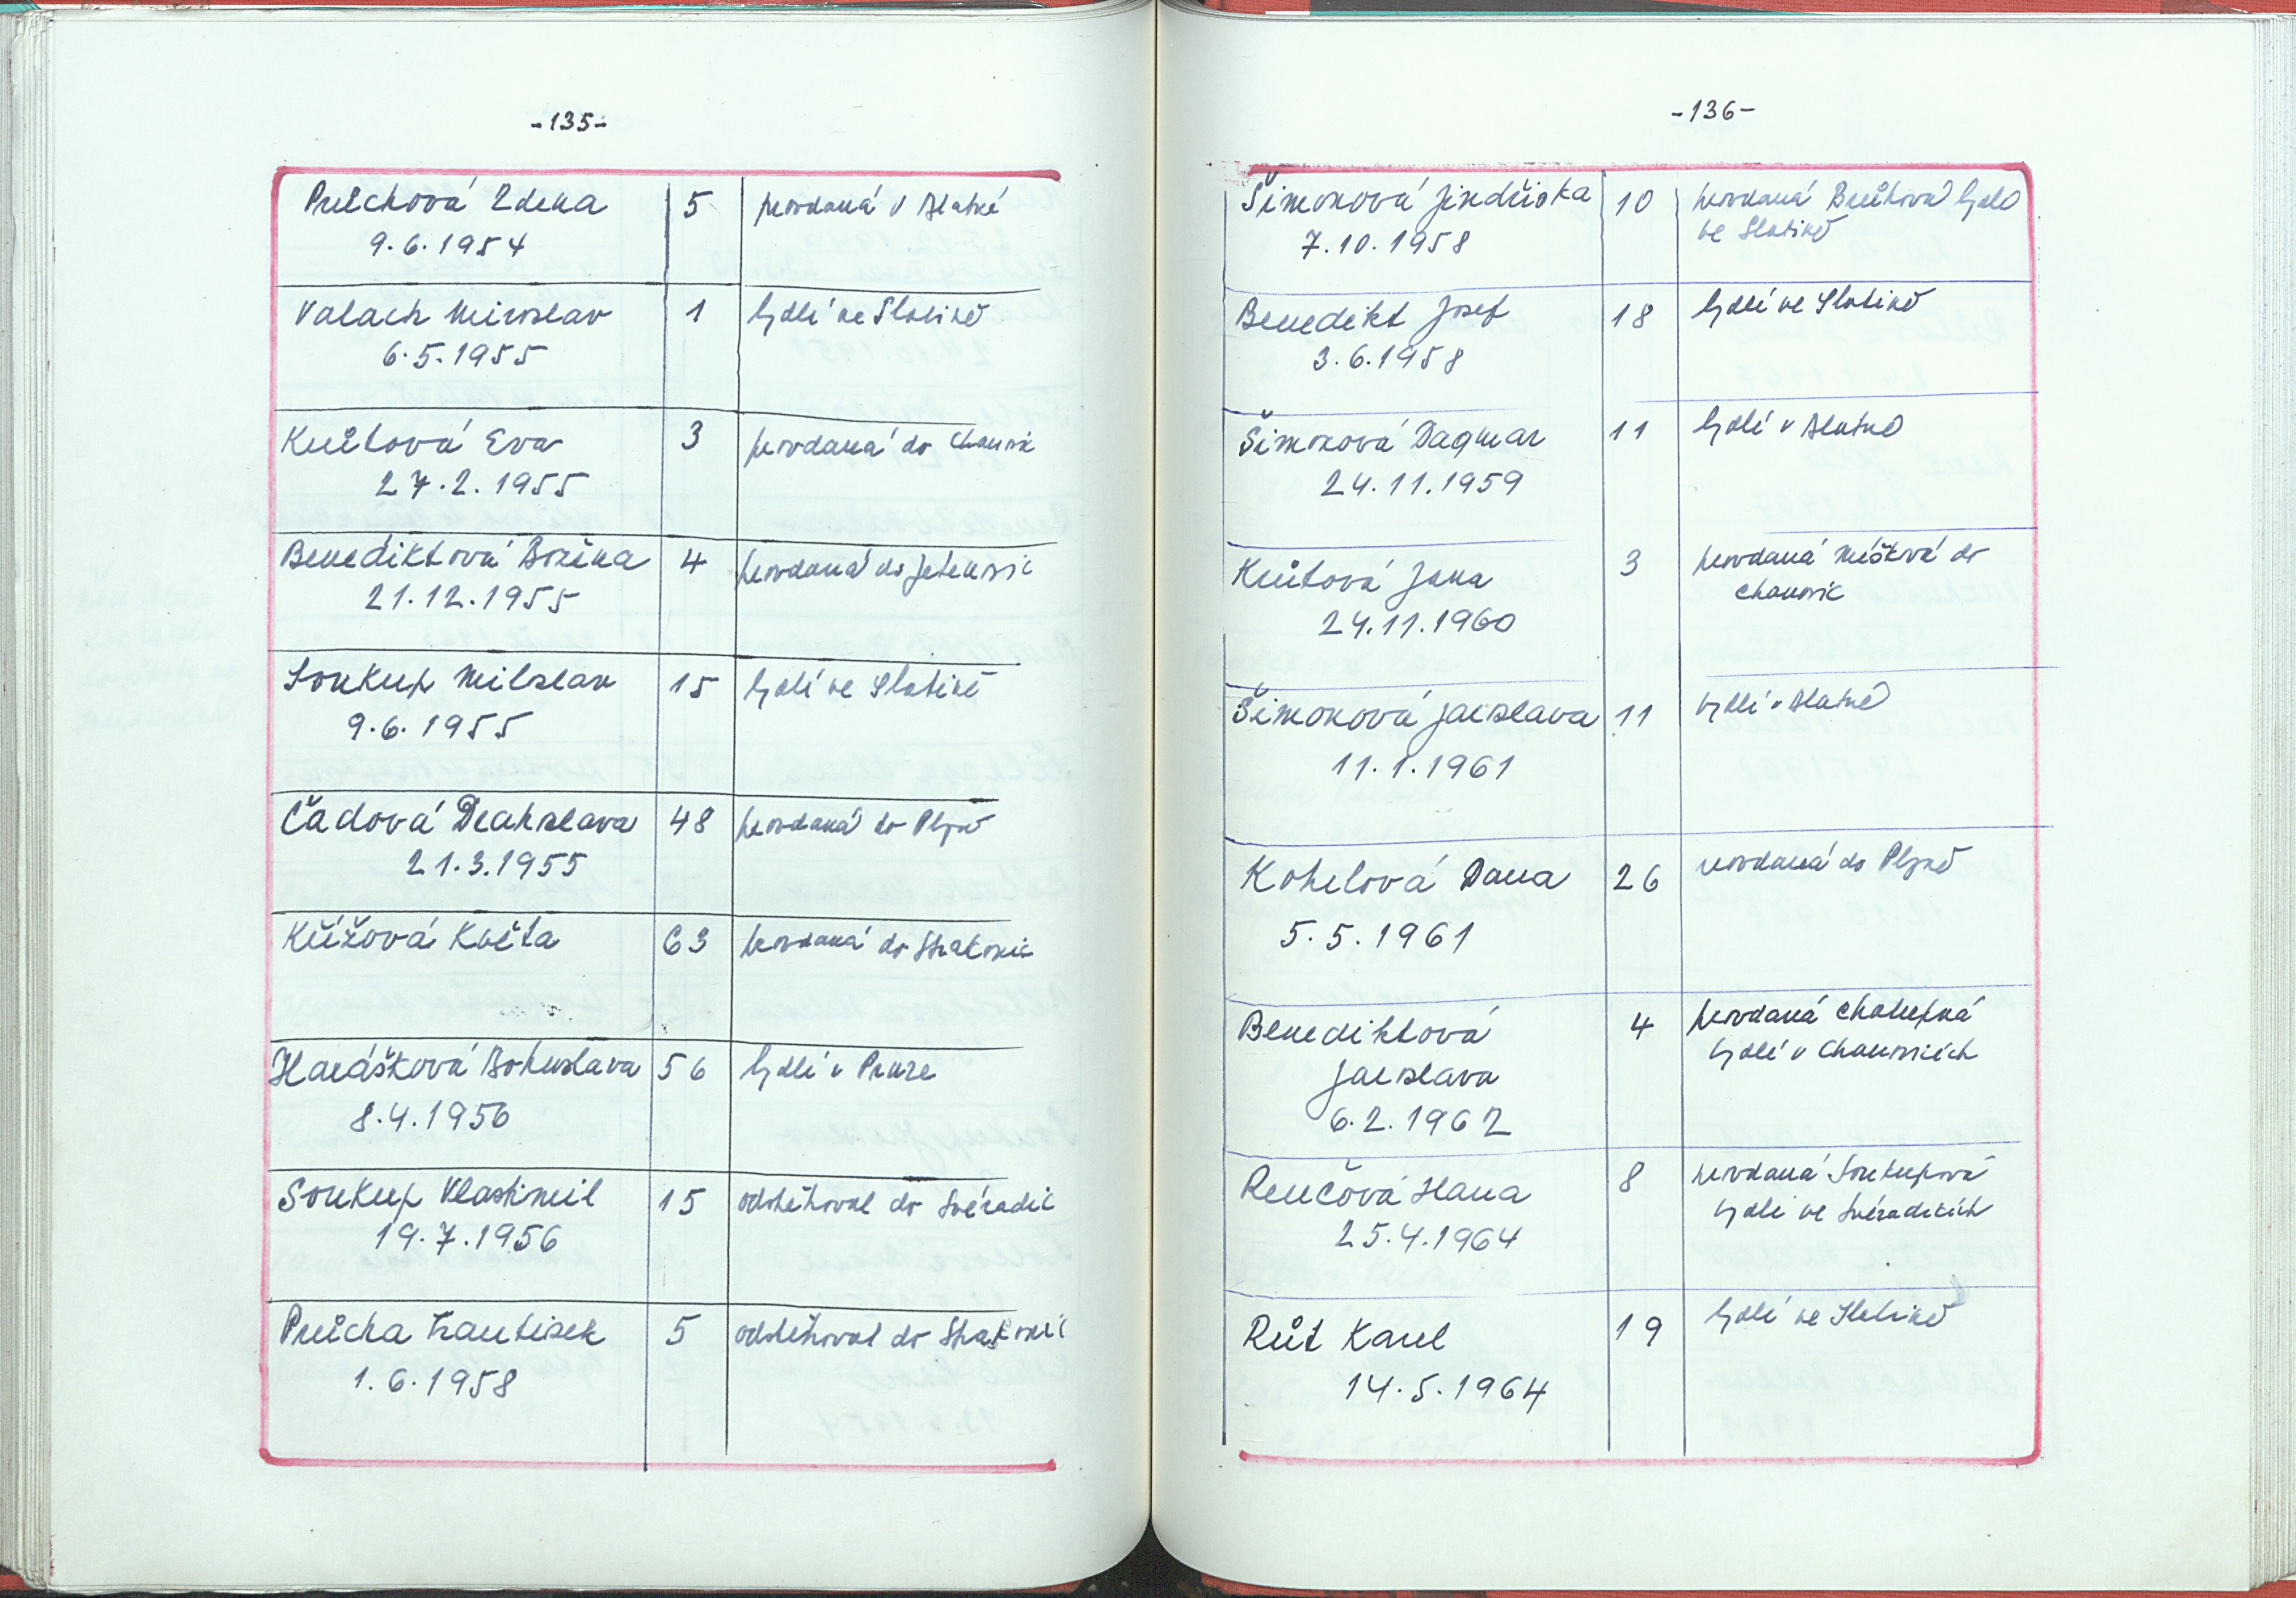 -135-
Průchová Zdena 5 provdaná v Blatné
9.6.1954
Valach Miroslav 1 bydlí ve Slatině
6.5.1955
Knítová Eva 3 provdaná do Chanovic
27.2.1955
Benediktová Božena 4 provdaná do Jetenovic
21.12.1955
Soukup Miloslav 15 bydlí ve Slatině
9.6.1955
Čadová Drahslava 48 provdaná do Plzně
21.3.1955
Křížová Květa 63 provdaná do Strakonic
Harášková Bohuslava 56 bydlí v Praze
8.4.1956
Soukup Vlastimil 15 odstěhoval do Svéradic
19.7.1956
Průcha František 5 odstěhoval do Strakonic
1.6.1958
-136-
Šimonová Jindřiška 10 provdaná bydlí
7.10.1958 ve Slatině
Benedikt Josef 18 bydlí ve Slatině
3.6.1958
Šimonová Dagmar 11 bydlí v Blatné
24.11.1959
Knítová Jana 3 provdaná do
Chanovic
24.11.1960
Šimonová Jaroslava 11 bydlí v Blatné
11.1.1961
Kohelová Dana 26 provdaná do Plzně
5.5.1961
Benediktová 4 provdaná Chalupná
bydlí v Chanovicích
Jaroslava
6.2.1962
Renčová Hana 8 provdaná Soukupová
bydlí ve Svéradicích
25.4.1964
Růt Karel 19 bydlí ve Slatině
14.5.1964